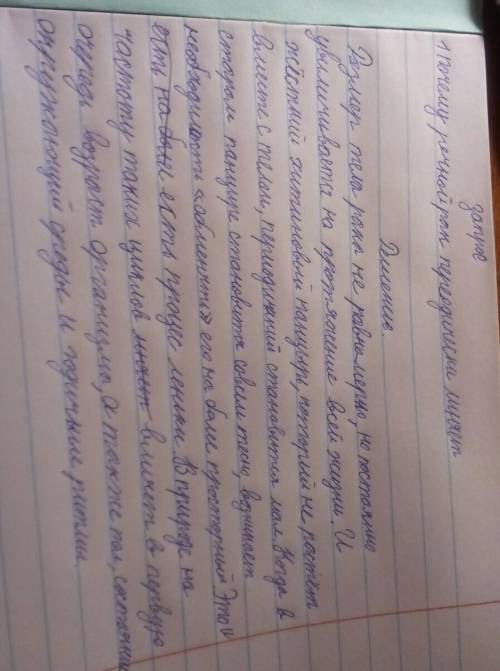 запрос
1 Почему речной рак периодически линяет
Решение.
Размер тела рака не равномерно, но постоянно
увеличивается на протяжение всей жизни. И
жёсткий хитиновый панцырь, который не растёт
вместе с телом, периодижний становится мал. Когда в
старом панцире становится совсем тесно, возникает
необходимость «обменять» его на более просторный Это и
есть на бони есть процес линьки. В природе на
частоту таких циклов влияет в первую
очередь возраст организма, а также пол, состояние
окружающей среды и годичные ритмы